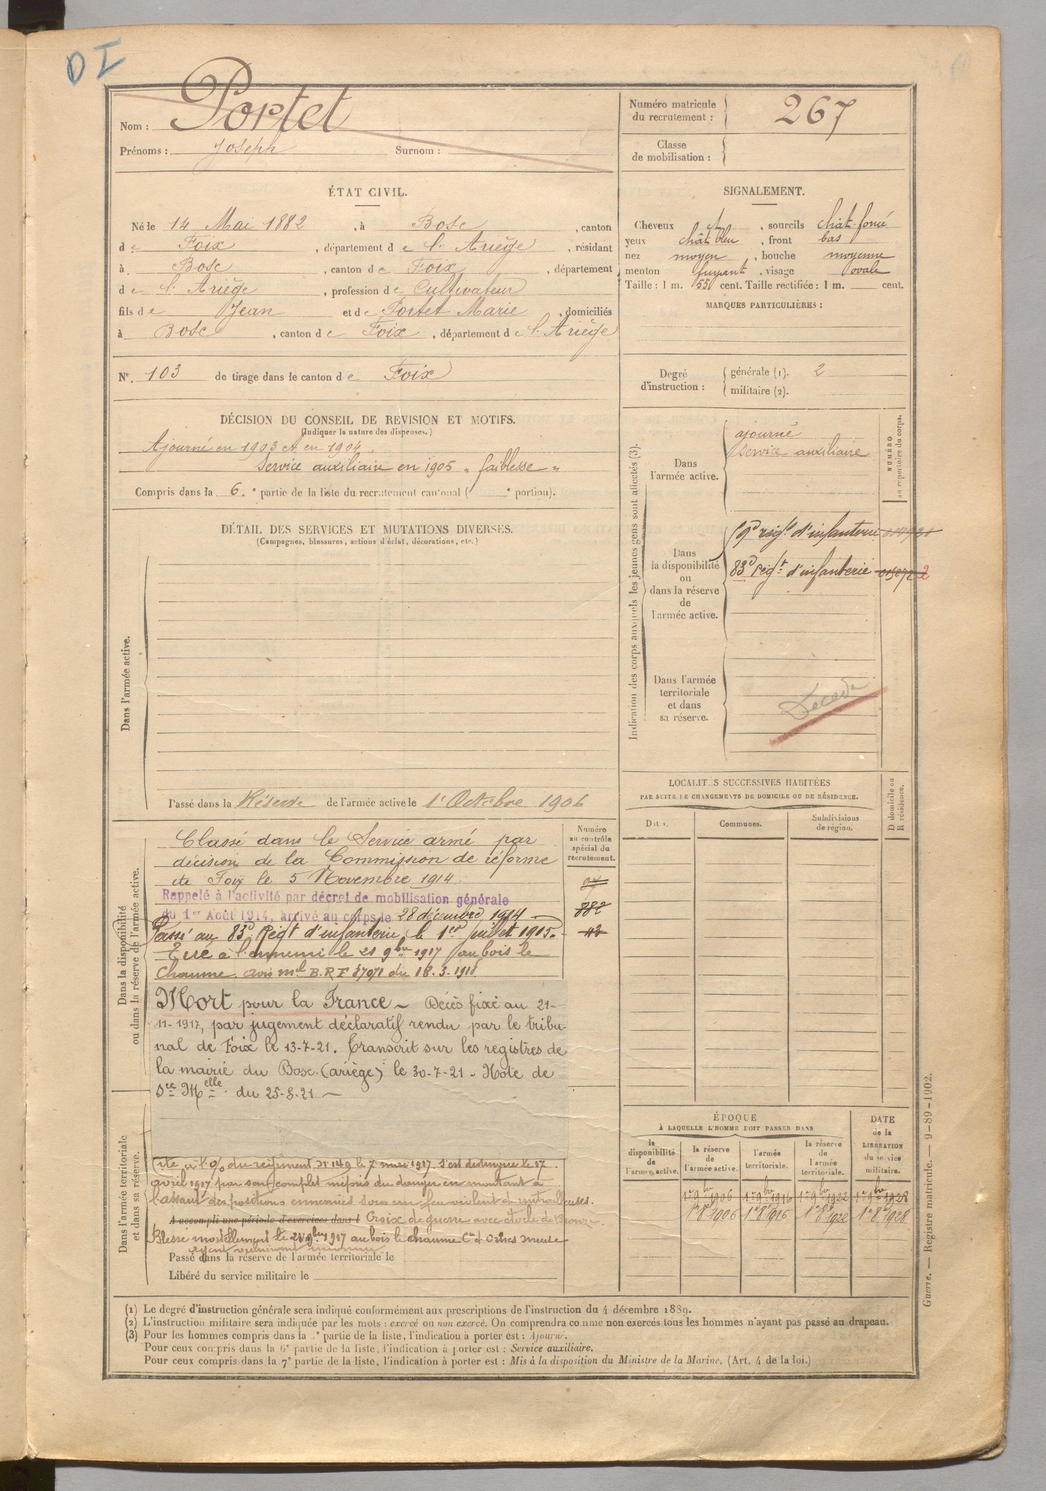 DI
Nom : Portet
Prénoms : Joseph Surnom :
Numéro matricule du recrutement : 267
Classe de mobilisation :
ÉTAT CIVIL.
Né le 14 Mai 1882, à Bosc, canton
de Foix, département de l'Ariège, résidant
à Bosc, canton de Foix, département
de l'Ariège, profession de Cultivateur
fils de Jean et de Portet Marie, domiciliés
à Bosc, canton de Foix, département de l'Ariège
N° 103 de tirage dans le canton de Foix
SIGNALEMENT.
Cheveux chât, sourcils chât foncé
yeux chât bleu, front bas
nez moyen, bouche moyenne
menton fuyant, visage ovale
Taille : 1 m. 550 cent. Taille rectifiée : 1 m. cent.
MARQUES PARTICULIÈRES :
Degré d'instruction : générale (1). 2
militaire (2).
DÉCISION DU CONSEIL DE REVISION ET MOTIFS.
(Indiquer la nature des dispenses.)
Ajourné en 1903 et en 1904
Service auxiliaire en 1905 " faiblesse "
Compris dans la 6e partie de la liste du recrutement cantonal ( e portion).
DÉTAIL DES SERVICES ET MUTATIONS DIVERSES.
(Campagnes, blessures, actions d'éclat, décorations, etc.)
Dans l'armée active.
Passé dans la Réserve de l'armée active le 1er Octobre 1906
Indication des corps auxquels les jeunes gens sont affectés (3).
NUMÉRO au répertoire du corps.
Dans l'armée active.
ajourné
Service auxiliaire
Dans la disponibilité ou dans la réserve de l'armée active.
9e régt d'infanterie
83e régt d'infanterie
Dans l'armée territoriale et dans sa réserve.
Décédé
LOCALITÉS SUCCESSIVES HABITÉES
PAR SUITE DE CHANGEMENTS DE DOMICILE OU DE RÉSIDENCE.
Dates. Communes. Subdivisions de région. D domicile ou R résidence.
Dans la disponibilité ou dans la réserve de l'armée active.
Numéro au contrôle spécial du recrutement.
Classé dans le Service armé par
décision de la Commission de réforme
de Foix le 5 Novembre 1914.
Rappelé à l'activité par décret de mobilisation générale
du 1er Août 1914, arrivé au corps le 28 décembre 1914
882
Passé au 83e Régt d'infanterie le 1er juillet 1915.
Tué à l'ennemi le 21 9bre 1917 au bois le
Chaume avis mel B.R.F 87971 du 18.3.1918
Mort pour la France - Décès fixé au 21-
11-1917, par jugement déclaratif rendu par le tribu-
nal de Foix le 13-7-21. Transcrit sur les registres de
la mairie du Bosc (ariège) le 30-7-21 - Note de
Sce Melle du 25-8-21
Dans l'armée territoriale et dans sa réserve.
Cité à l'o/ du régiment N° 149 le 7 mai 1917 s'est distingué le 17
avril 1917 par son complet mépris du danger en montant à
l'assaut des positions ennemies sous un feu violent de mitrailleuses.
A accompli une période d'exercices dans l Croix de guerre avec étoile de Bronze
Blessé mortellement le 21 9bre 1917 au bois le chaume Cne d'Ornes Meuse
Passé dans la réserve de l'armée territoriale le
Libéré du service militaire le
ÉPOQUE
À LAQUELLE L'HOMME DOIT PASSER DANS
DATE de la LIBÉRATION du service militaire.
la disponibilité de l'armée active. la réserve de l'armée active. l'armée territoriale. la réserve de l'armée territoriale.
1er 9bre 1906 1er 9bre 1916 1er 9bre 1922 1er 9bre 1928
1er 8bre 1906 1er 8bre 1916 1er 8bre 1922 1er 8bre 1928
(1) Le degré d'instruction générale sera indiqué conformément aux prescriptions de l'instruction du 4 décembre 1889.
(2) L'instruction militaire sera indiquée par les mots : exercé ou non exercé. On comprendra comme non exercés tous les hommes n'ayant pas passé au drapeau.
(3) Pour les hommes compris dans la 5e partie de la liste, l'indication à porter est : Ajourné.
Pour ceux compris dans la 6e partie de la liste, l'indication à porter est : Service auxiliaire.
Pour ceux compris dans la 7e partie de la liste, l'indication à porter est : Mis à la disposition du Ministre de la Marine. (Art. 4 de la loi.)
Guerre. — Registre matricule. — 9-89-1902.